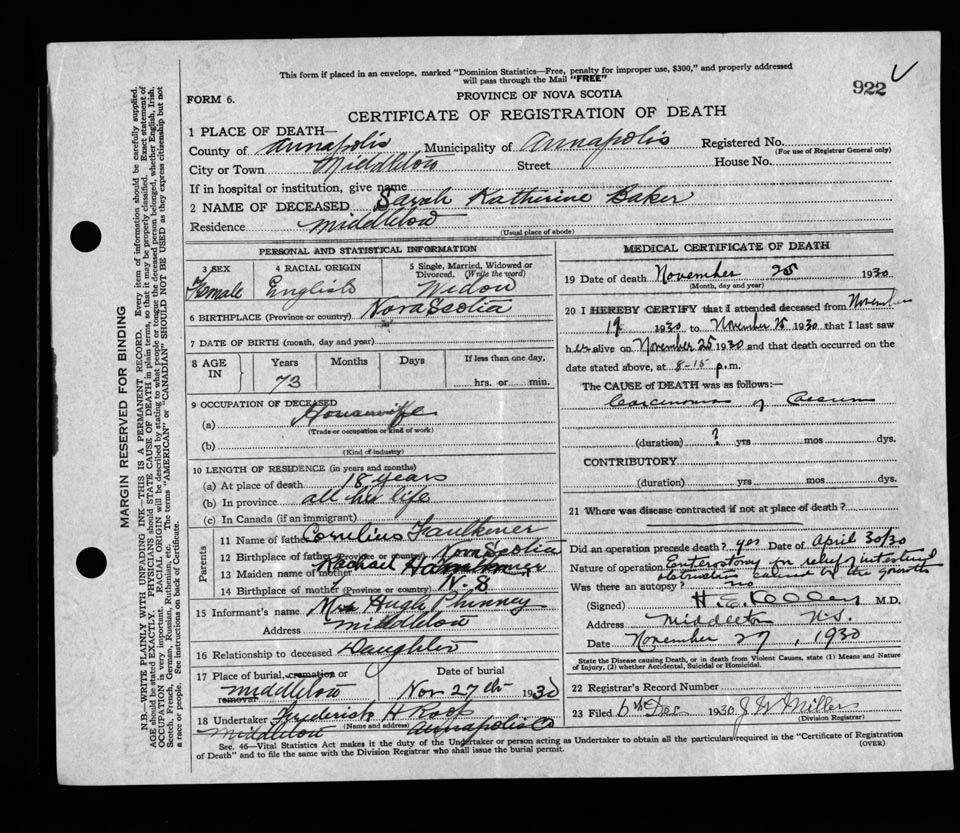 This form if placed in an envelope, marked "Dominion Statistics—Free, penalty for improper use, $300," and properly addressed
will pass through the Mail "FREE"
922
FORM 6.
PROVINCE OF NOVA SCOTIA
CERTIFICATE OF REGISTRATION OF DEATH
1 PLACE OF DEATH—
County of Annapolis Municipality of Annapolis Registered No.
(For use of Registrar General only)
City or Town Middleton Street House No.
If in hospital or institution, give name
2 NAME OF DECEASED Sarah Katherine Baker
Residence Middleton
(Usual place of abode)
PERSONAL AND STATISTICAL INFORMATION
3 SEX 4 RACIAL ORIGIN 5 Single, Married, Widowed or Divorced. (Write the word)
Female English Widow
6 BIRTHPLACE (Province or country) Nova Scotia
7 DATE OF BIRTH (month, day and year)
8 AGE IN Years Months Days If less than one day,
73 hrs. or min.
9 OCCUPATION OF DECEASED
(a) Housewife
(Trade or occupation or kind of work)
(b)
(Kind of industry)
10 LENGTH OF RESIDENCE (in years and months)
(a) At place of death 18 years
(b) In province all her life
(c) In Canada (if an immigrant)
Parents
11 Name of father Cornelius Faulkener
12 Birthplace of father (Province or country) Nova Scotia
13 Maiden name of mother Rachael
14 Birthplace of mother (Province or country) N.S
15 Informant's name Mrs Hugh Phinney
Address Middleton
16 Relationship to deceased Daughter
17 Place of burial, cremation or removal Date of burial
Middleton Nov 27th 1930
18 Undertaker Frederick H Roop
(Name and address)
Middleton Annapolis Co
MEDICAL CERTIFICATE OF DEATH
19 Date of death November 25 1930
(Month, day and year)
20 I HEREBY CERTIFY that I attended deceased from November
19 1930 to November 25 1930 that I last saw
her alive on November 25 1930 and that death occurred on the
date stated above, at 8-15 p.m.
The CAUSE of DEATH was as follows:—
Carcinoma of Caecum
(duration) ? yrs mos dys.
CONTRIBUTORY
(duration) yrs mos dys.
21 Where was disease contracted if not at place of death?
Did an operation precede death? yes Date of April 30/30
Nature of operation Enterostomy for relief intestinal
obstruction caused by the growth
Was there an autopsy? no
(Signed) M.D.
Address Middleton N.S.
Date November 27, 1930
State the Disease causing Death, or in death from Violent Causes, state (1) Means and Nature of Injury, (2) whether Accidental, Suicidal or Homicidal.
22 Registrar's Record Number
23 Filed 6th Dec 1930 J W Miller
(Division Registrar)
Sec. 46—Vital Statistics Act makes it the duty of the Undertaker or person acting as Undertaker to obtain all the particulars required in the "Certificate of Registration
of Death" and to file the same with the Division Registrar who shall issue the burial permit.
(OVER)
MARGIN RESERVED FOR BINDING
N.B.—WRITE PLAINLY WITH UNFADING INK—THIS IS A PERMANENT RECORD. Every item of information should be carefully supplied.
AGE should be stated EXACTLY. PHYSICIANS should STATE CAUSE OF DEATH in plain terms, so that it may be properly classified. Exact statement of
OCCUPATION is very important. RACIAL ORIGIN will be described by stating to what people or tongue the deceased person belonged, whether English, Irish,
Scotch, French, German, Russian, Ruthenian, etc. The terms "AMERICAN" or "CANADIAN" SHOULD NOT BE USED as they express citizenship but not
a race or people. See instructions on back of Certificate.